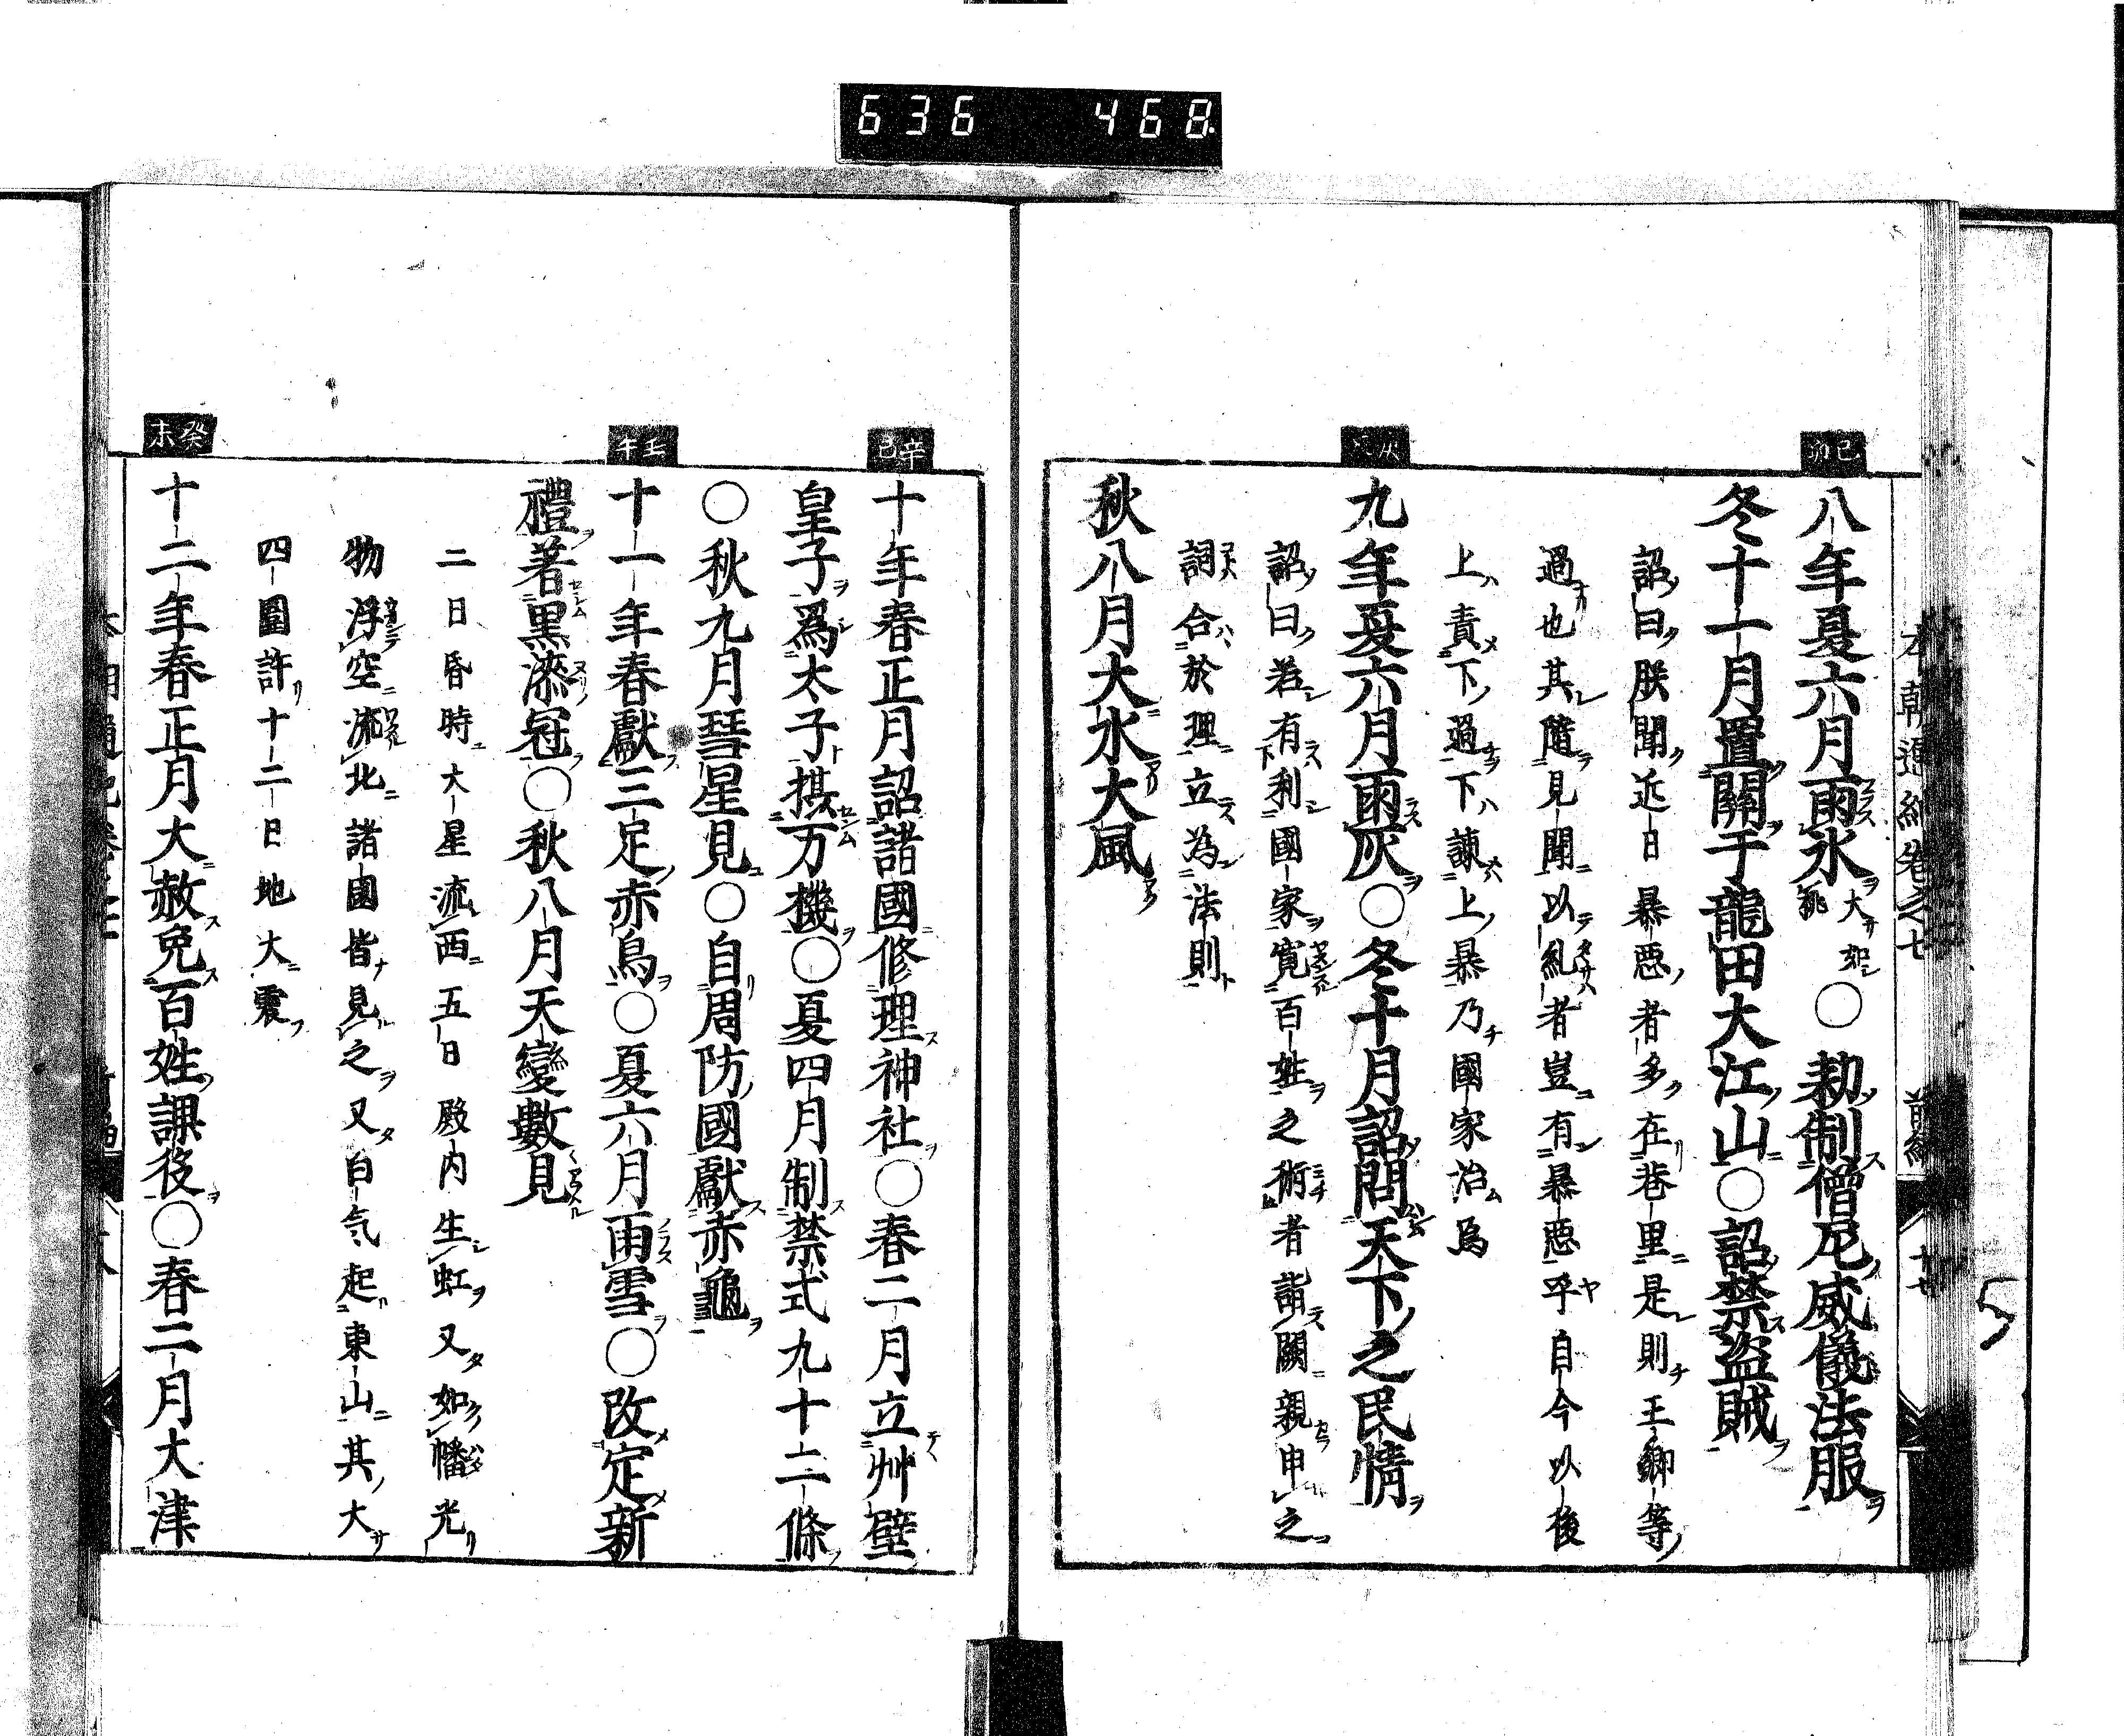 636 468
本朝通紀卷之七 前編 十七
己卯
八年夏六月雨氷大如桃○勅制僧尼威儀法服
冬十一月置關于龍田大江山○詔禁盜賊
詔曰朕聞近日暴惡者多在巷里是則王卿等
過也其隨見聞以糺者豈有暴惡乎自今以後
上責下過下諫上暴乃國家治焉
九年夏六月雨灰○冬十月詔問天下之民情
詔曰若有利國家寛百姓之術者詣闕親申之
詞合於理立為法則
秋八月大水大風
辛巳
十年春正月詔諸國修理神社○春二月立艸壁
皇子爲太子摂万機○夏四月制禁式九十二條
○秋九月彗星見○自周防國獻赤龜
壬午
十一年春獻三足赤鳥○夏六月雨雪○改定新
禮著黒漆冠○秋八月天變數見
二日昏時大星流西五日殿内生虹又如幡光
物浮空流北諸國皆見之又白气起東山其大
四圍許十二日地大震
癸未
十二年春正月大赦免百姓課役○春二月大津